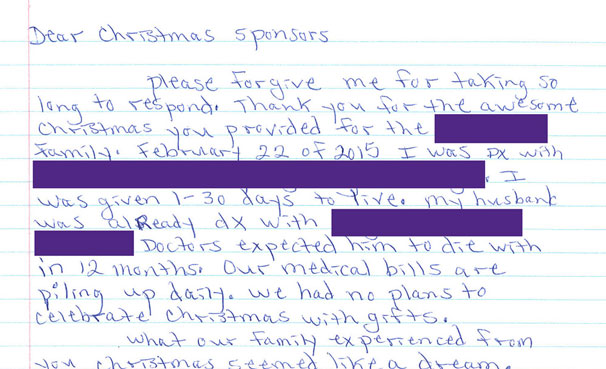 Dear Christmas Sponsors
please forgive me for taking so
long to respond. Thank you for the awesome
Christmas you provided for the
Family. February 22 of 2015 I was DX with
. I
was given 1-30 days to live. my husband
was already dx with
Doctors expected him to die with
in 12 months. Our medical bills are
piling up daily. We had no plans to
celebrate Christmas with gifts.
What our family experienced from
you Christmas seemed like a dream.